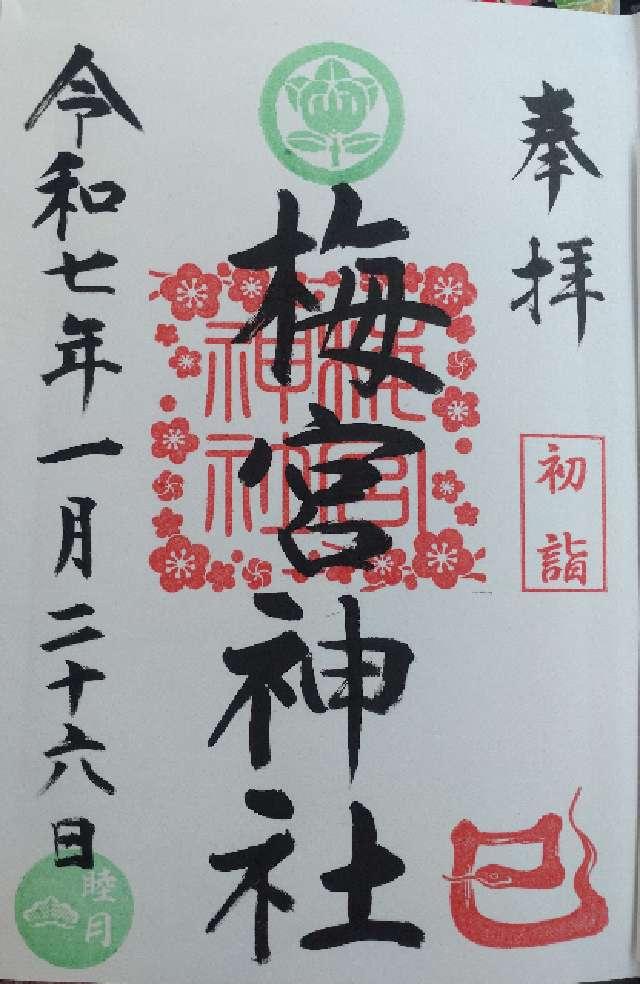 奉拝
初詣
巳
梅宮神社
梅宮
神社
令和七年一月二十六日
睦月